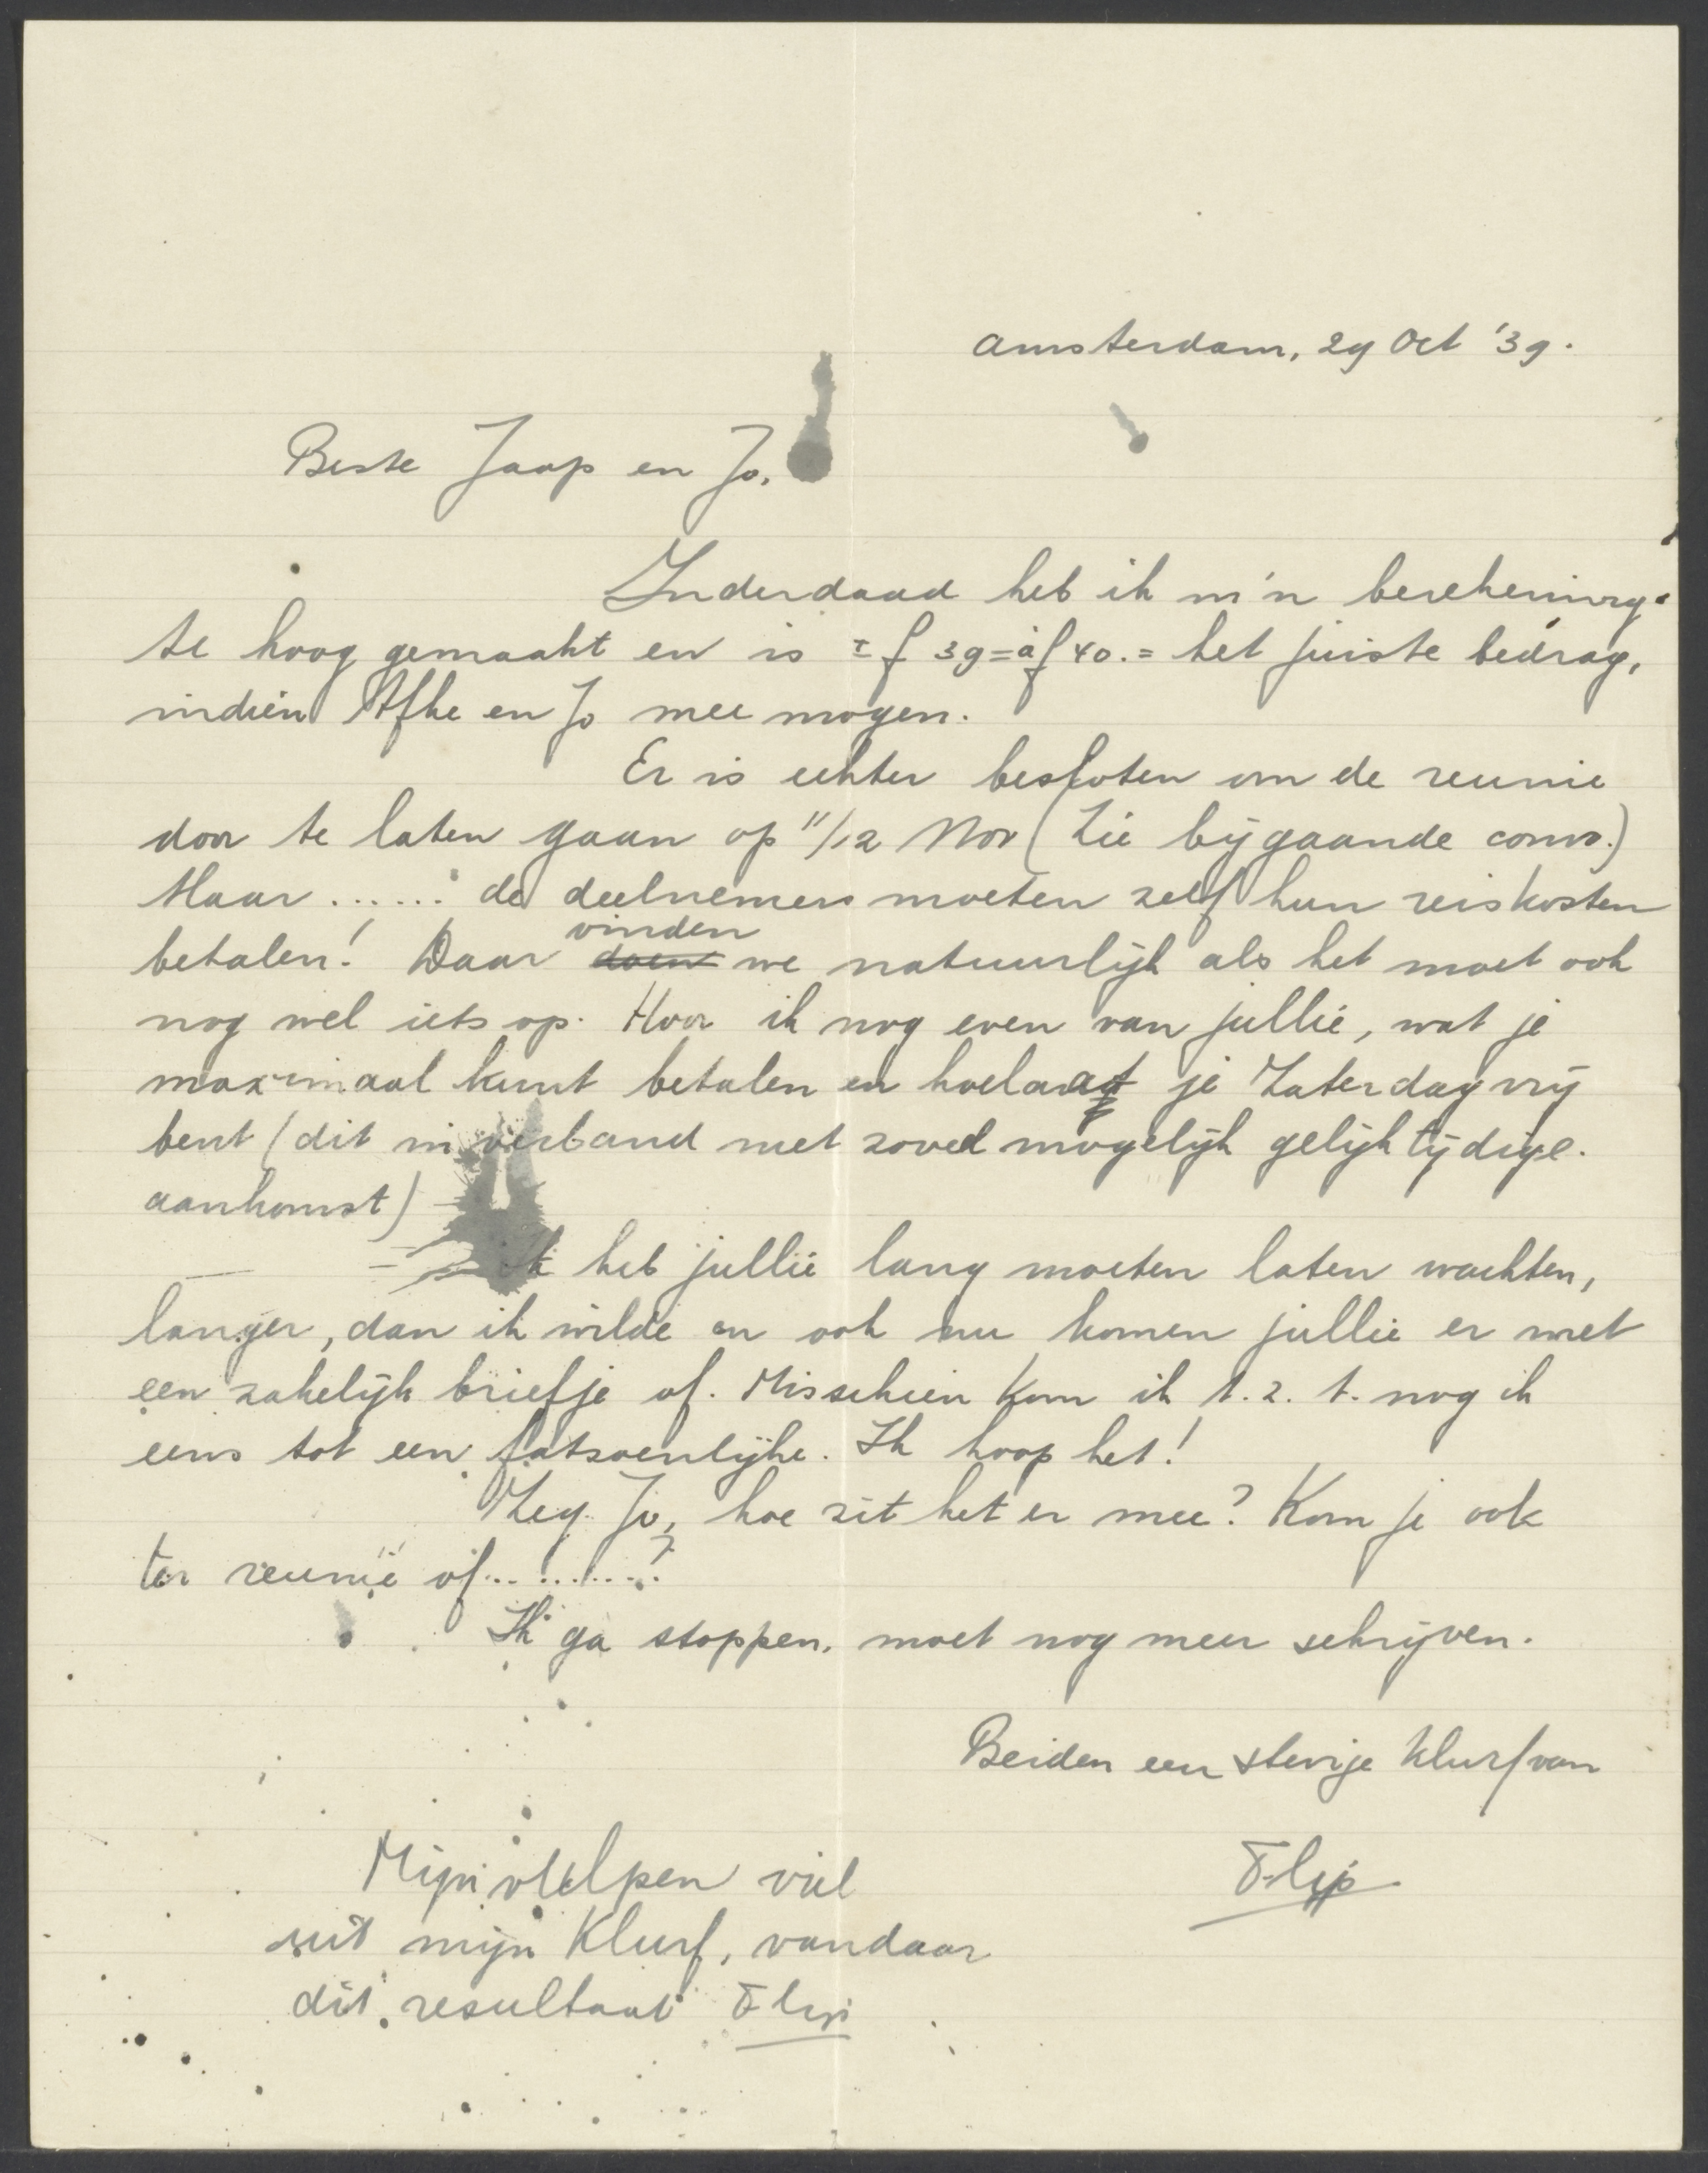 Amsterdam, 29 Oct '39.
Beste Jaap en Jo,
Inderdaad heb ik m'n berekening
te hoog gemaakt en is ± f 39= à f 40.= het juiste bedrag,
indien Afke en Jo mee mogen.
Er is echter besloten om de reunie
door te laten gaan op 11/12 Nov (Zie bijgaande convo.)
Maar ...... de deelnemers moeten zelf hun reiskosten
betalen! Daar doen vinden we natuurlijk als het moet ook
nog wel iets op. Hoor ik nog even van jullie, wat je
maximaal kunt betalen en hoelaat je Zaterdag vrij
bent (dit in verband met zoveel mogelijk gelijktijdige
aankomst)
Ik heb jullie lang moeten laten wachten,
langer, dan ik wilde en ook nu komen jullie er met
een zakelijk briefje af. Misschien kom ik t.z.t. nog ik
eens tot een fatsoenlijke. Ik hoop het!
Zeg Jo, hoe zit het er mee? Kom je ook
ter reunie of..........?
Ik ga stoppen, moet nog meer schrijven.
Beiden een stevige klurf van
Flip
Mijn vulpen viel
uit mijn klurf, vandaar
dit resultaat Flip